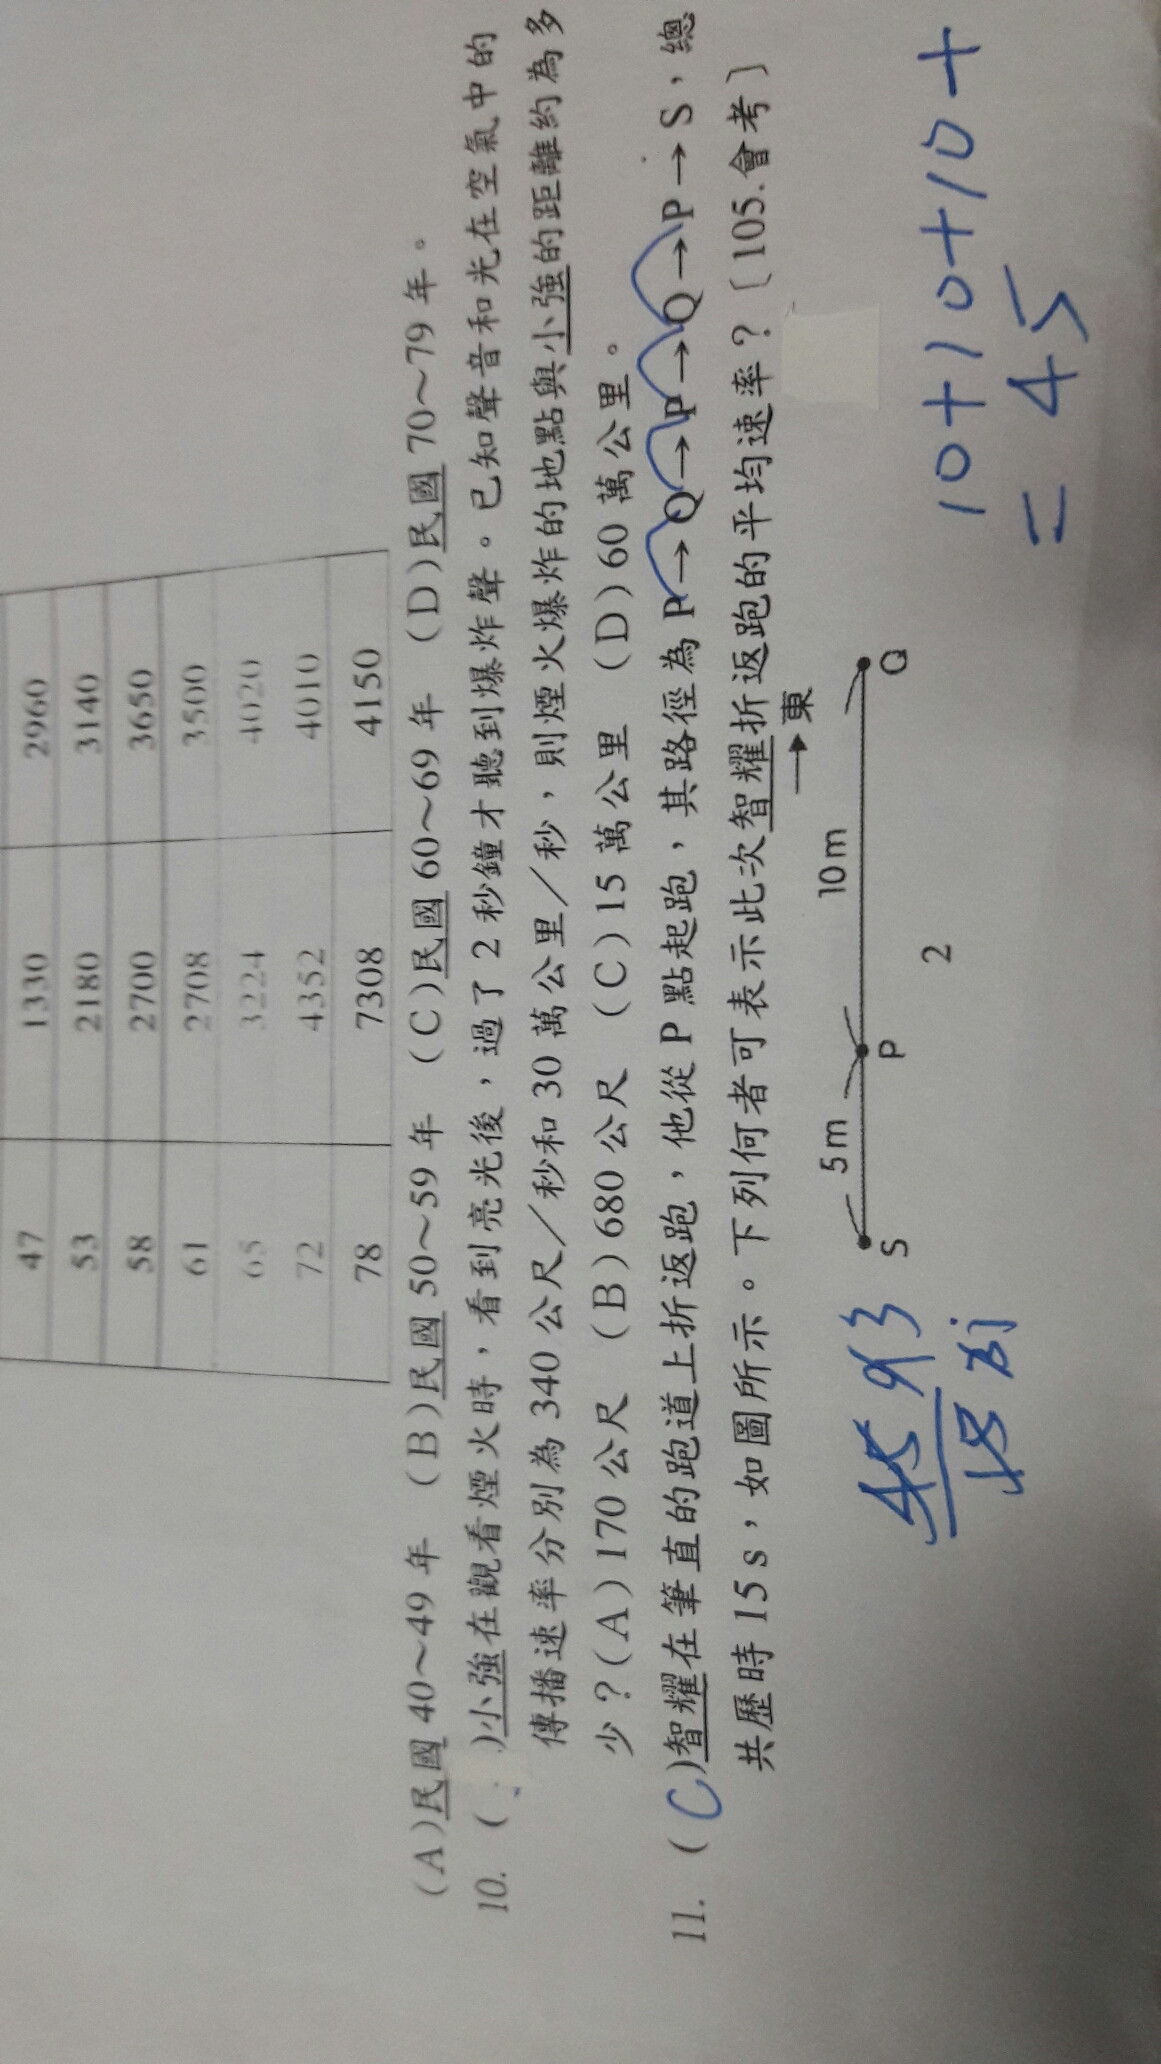 47 1330 2960
53 2180 3140
58 2700 3650
61 2708 3500
65 3224 4020
72 4352 4010
78 7308 4150
(A)民國 40～49 年 (B)民國 50～59 年 (C)民國 60～69 年 (D)民國 70～79 年。
10. ( )小強在觀看煙火時，看到亮光後，過了 2 秒鐘才聽到爆炸聲。已知聲音和光在空氣中的
傳播速率分別為 340 公尺／秒和 30 萬公里／秒，則煙火爆炸的地點與小強的距離約為多
少？(A)170 公尺 (B)680 公尺 (C)15 萬公里 (D)60 萬公里。
11. (C)智耀在筆直的跑道上折返跑，他從 P 點起跑，其路徑為 P→Q→P→Q→P→S，總
共歷時 15 s，如圖所示。下列何者可表示此次智耀折返跑的平均速率？〔105.會考〕
→東
5m 10m
S P Q
10+10+10+
=45
45 9 3
15
2